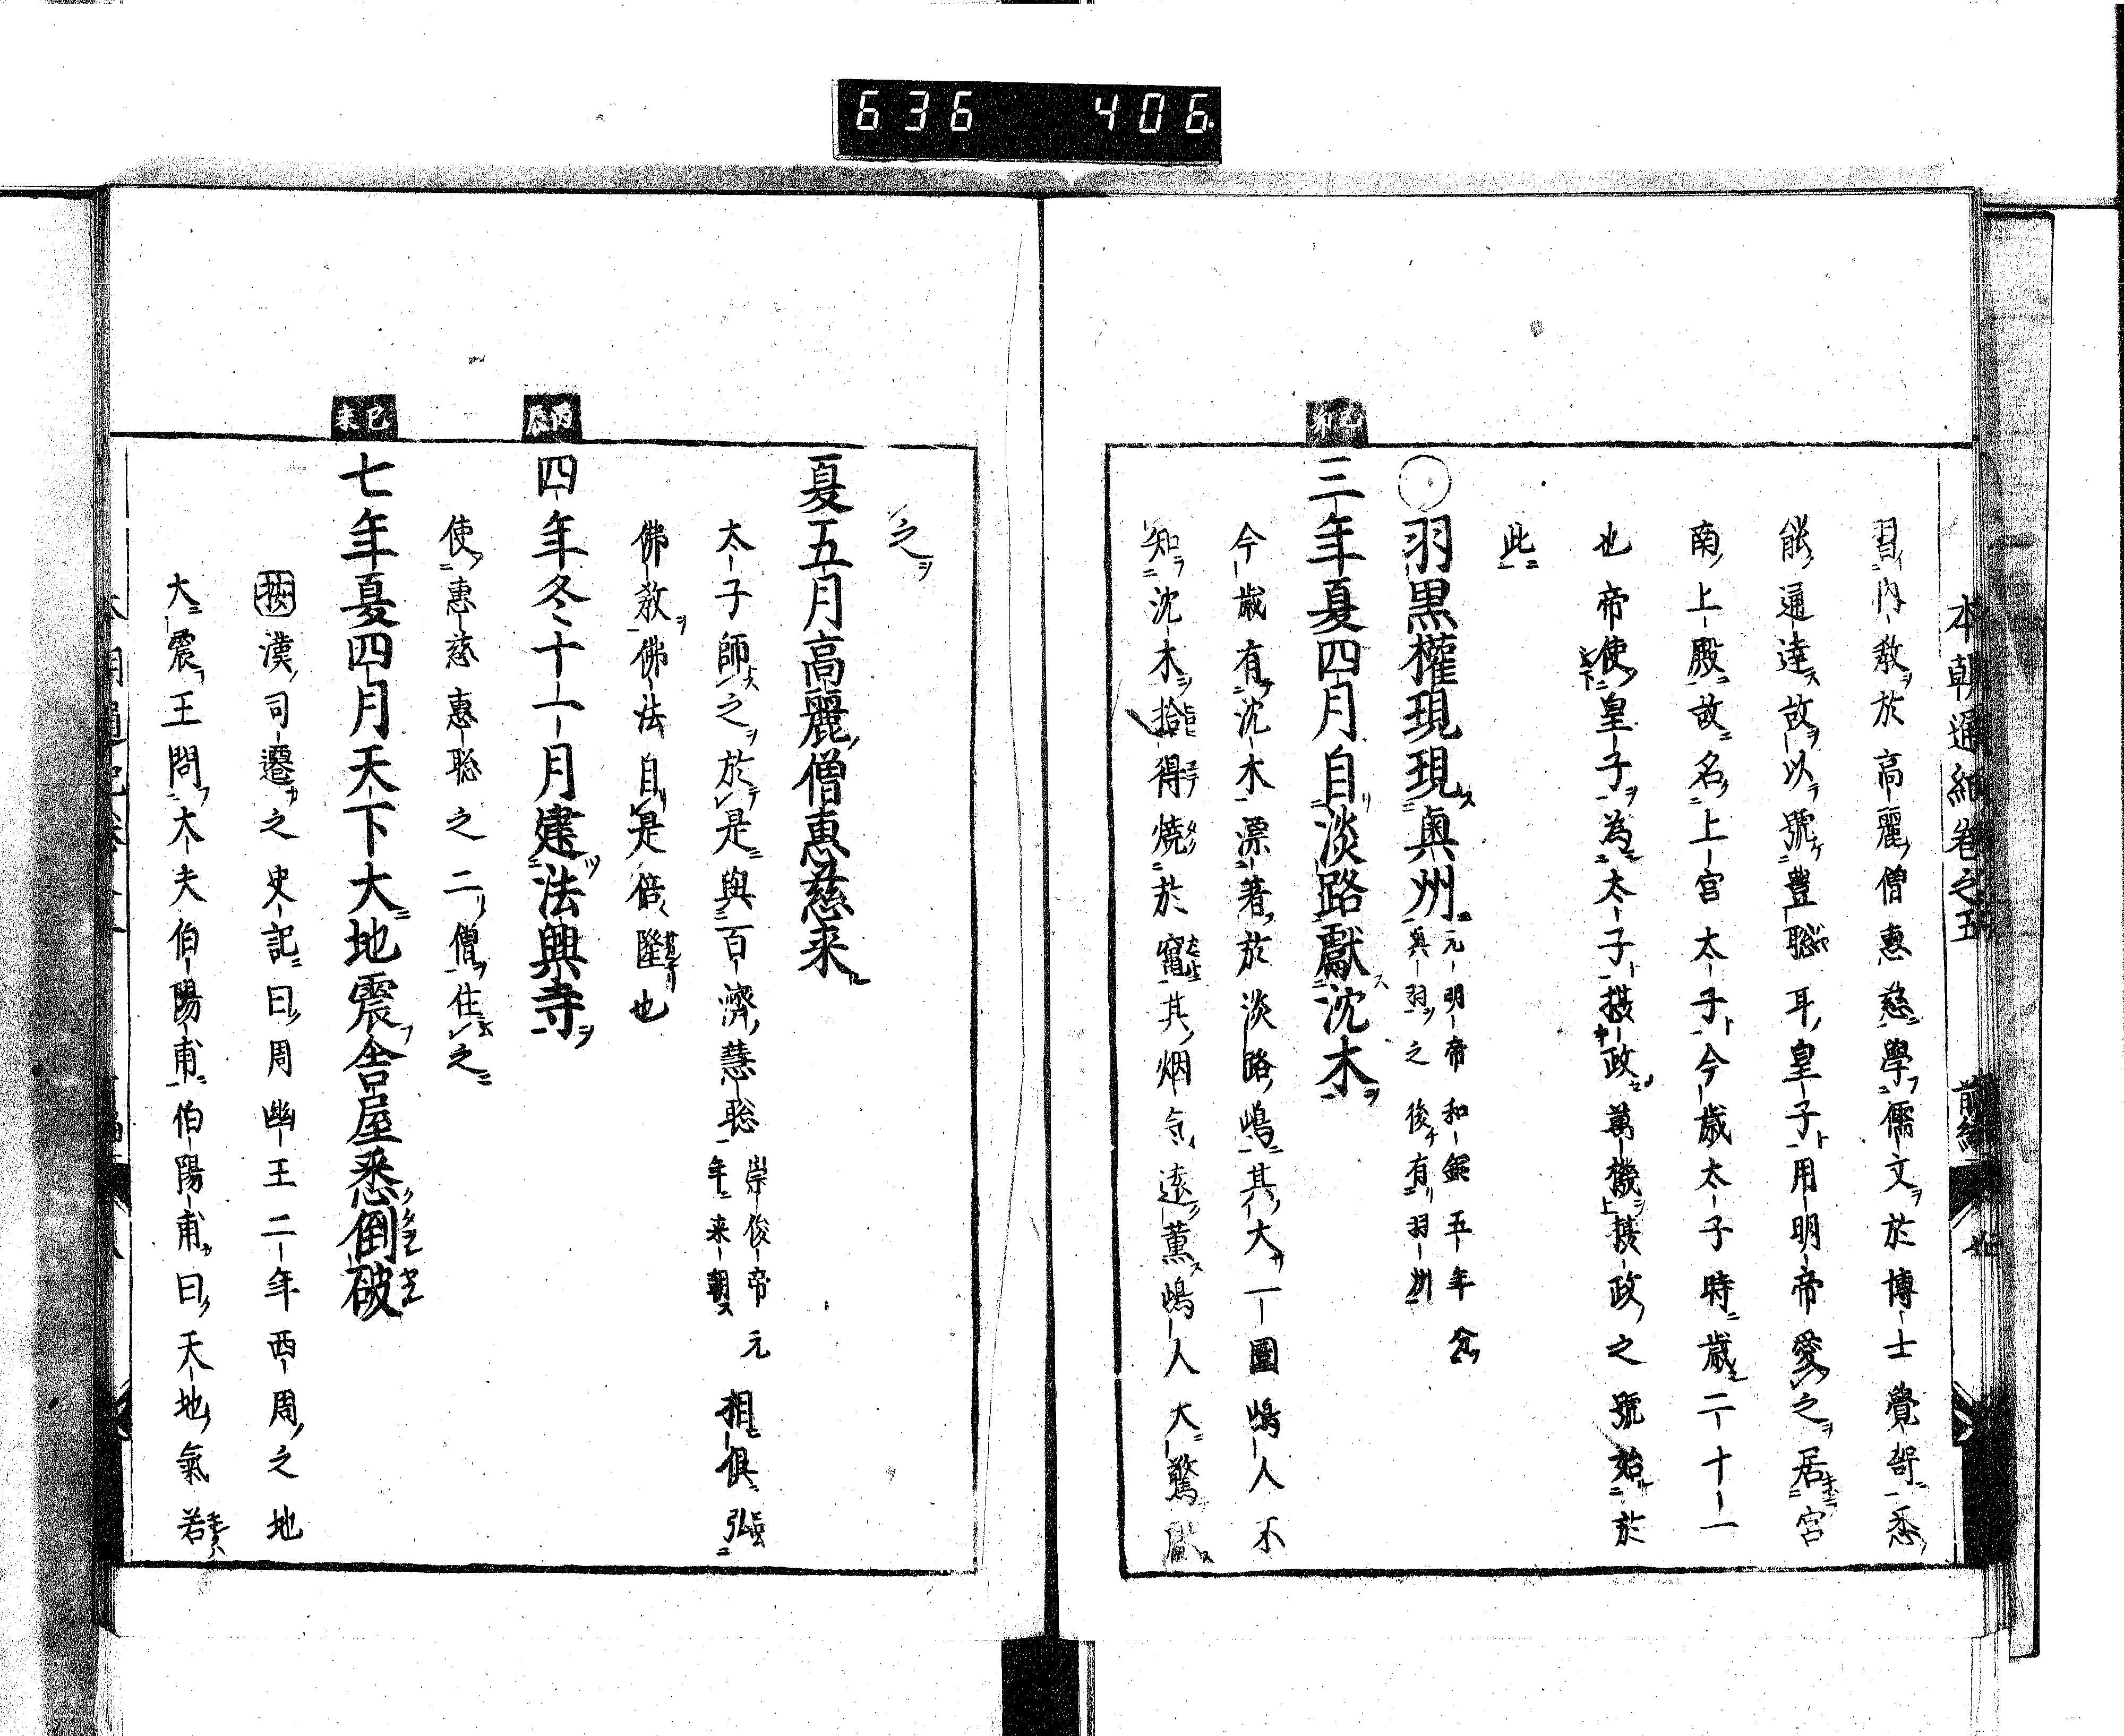 636 406
本朝通紀卷之五 前編
習内教於高麗僧惠慈學儒文於博士覺哿悉
能通達故以號豊聡耳皇子用明帝愛之居宮
南上殿故名上宮太子今歳太子時歳二十一
也帝使皇子為太子摂政萬機摂政之號始於
此
羽黒權現現奥州 元明帝和銅五年分
奥羽之後有羽州
乙卯
三年夏四月自淡路獻沈木
今歳有沈木漂著於淡路嶋其大一圍嶋人不
知沈木拾得焼於竈其烟気遠薫嶋人大驚獻
之
夏五月高麗僧惠慈来
太子師之於是與百濟慧聡 崇俊帝元
年来朝 相俱弘
佛教佛法自是倍隆也
丙辰
四年冬十一月建法興寺
使惠慈惠聡之二僧住之
己未
七年夏四月天下大地震舎屋悉倒破
按漢司遷之史記曰周幽王二年西周之地
大震王問大夫伯陽甫伯陽甫曰天地氣若